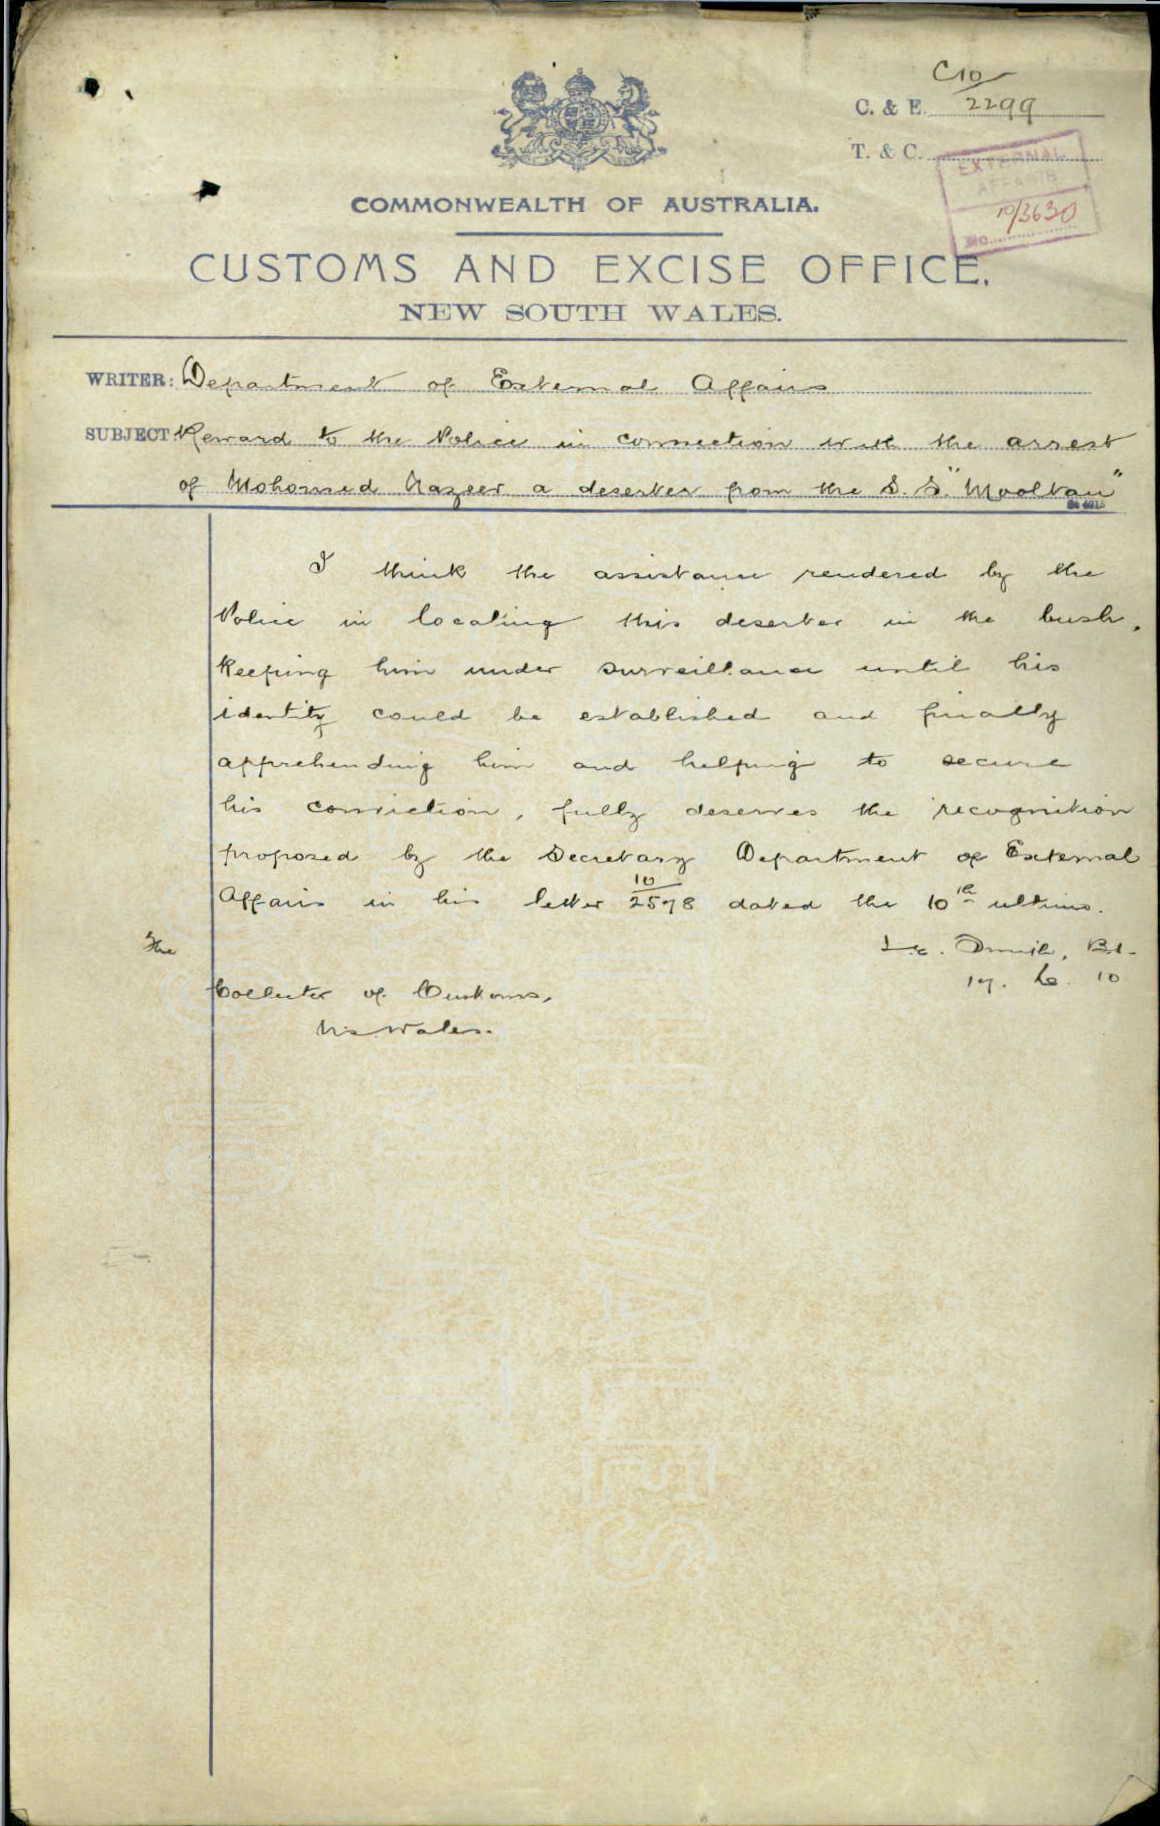 C10/
C. & E. 2299
T. & C.
EXTERNAL
AFFAIRS
No. 10/3630
COMMONWEALTH OF AUSTRALIA.
CUSTOMS AND EXCISE OFFICE.
NEW SOUTH WALES.
WRITER: Department of External Affairs
SUBJECT Reward to the Police in connection with the arrest
of Mohomed Nazeer a deserter from the S. S. "Mooltan"
I think the assistance rendered by the
Police in locating this deserter in the bush,
keeping him under surveillance until his
identity could be established and finally
apprehending him and helping to secure
his conviction, fully deserves the recognition
proposed by the Secretary Department of External
Affairs in his letter 10/2578 dated the 10th ultimo.
The
Collector of Customs,
N.S. Wales.